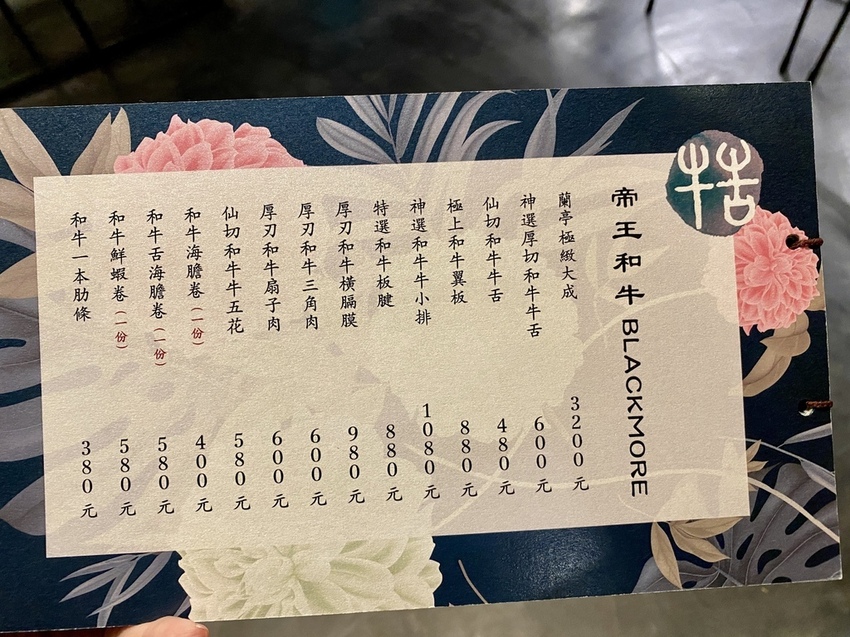 牯
帝王和牛BLACKMORE
蘭亭極緻大成 3200元
神選厚切和牛牛舌 600元
仙切和牛牛舌 480元
極上和牛翼板 880元
神選和牛牛小排 1080元
特選和牛板腱 880元
厚刃和牛橫膈膜 980元
厚刃和牛三角肉 600元
厚刃和牛扇子肉 600元
仙切和牛牛五花 580元
和牛海膽卷(一份) 400元
和牛舌海膽卷(一份) 580元
和牛鮮蝦卷(一份) 580元
和牛一本肋條 380元